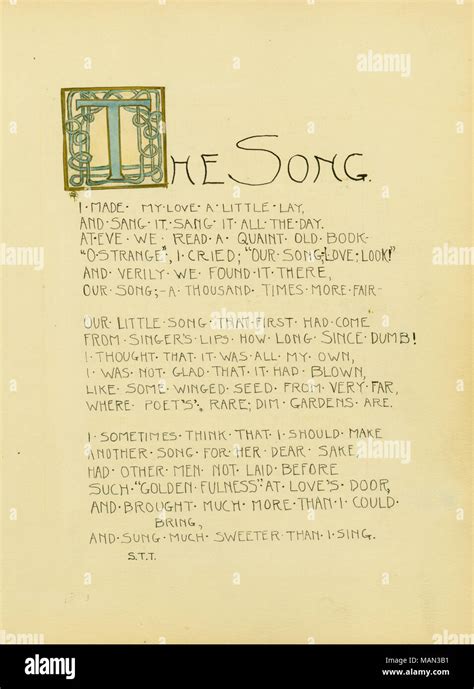 THE SONG.
I·MADE·MY·LOVE·A·LITTLE·LAY,
AND·SANG·IT, SANG·IT·ALL·THE·DAY.
AT·EVE·WE·READ·A·QUAINT·OLD·BOOK-
"O·STRANGE", I·CRIED; "OUR·SONG, LOVE·LOOK!"
AND·VERILY·WE·FOUND·IT·THERE,
OUR·SONG;-A·THOUSAND·TIMES·MORE·FAIR-
OUR·LITTLE·SONG·THAT·FIRST·HAD·COME
FROM·SINGER'S·LIPS·HOW·LONG·SINCE·DUMB!
I·THOUGHT·THAT·IT·WAS·ALL·MY·OWN,
I·WAS·NOT·GLAD·THAT·IT·HAD·BLOWN,
LIKE·SOME·WINGED·SEED·FROM·VERY·FAR,
WHERE·POET'S·RARE; DIM·GARDENS·ARE.
I·SOMETIMES·THINK·THAT·I·SHOULD·MAKE
ANOTHER·SONG·FOR·HER·DEAR·SAKE,
HAD·OTHER·MEN·NOT·LAID·BEFORE
SUCH·"GOLDEN·FULNESS" AT·LOVE'S·DOOR,
AND·BROUGHT·MUCH·MORE·THAN·I·COULD·
BRING,
AND·SUNG·MUCH·SWEETER·THAN·I·SING.
S.T.T.
alamy
Image ID: MAN3B1
www.alamy.com